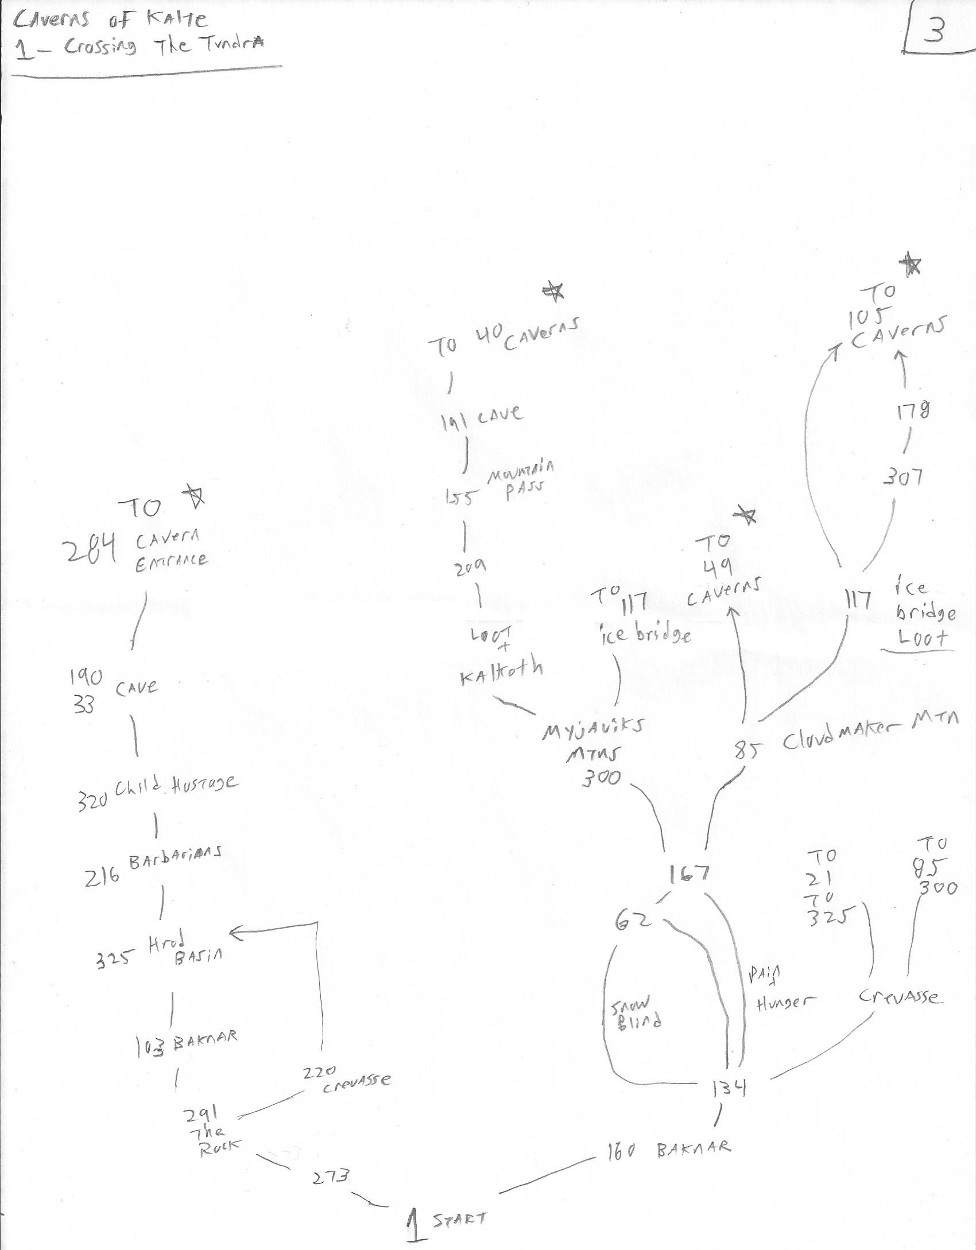 CAverns of KAlte
1 - Crossing The TundrA
3
TO
105
CAverns
TO 40 CAverns
179
191 CAve
307
155 MouNTAiN
PASS
TO
284 CAVern
EntrANCE
209
TO
49
CAverns
TO
117
ice bridge
117 ice
bridge
Loot
Loot
+
KAltroth
190
33 CAve
MyjAviks
MTNS
300
85 CloudmAKer MTN
320 Child Hostage
216 BArbAriANs
167
62
TO
21
TO
325
TO
85
300
325 Hrod
BASin
Snow
Blind
PAin
+
Hunger
CrevAsse
103 BAKNAR
220
CrevAsse
134
291
The
Rock
160 BAKNAR
273
1 START